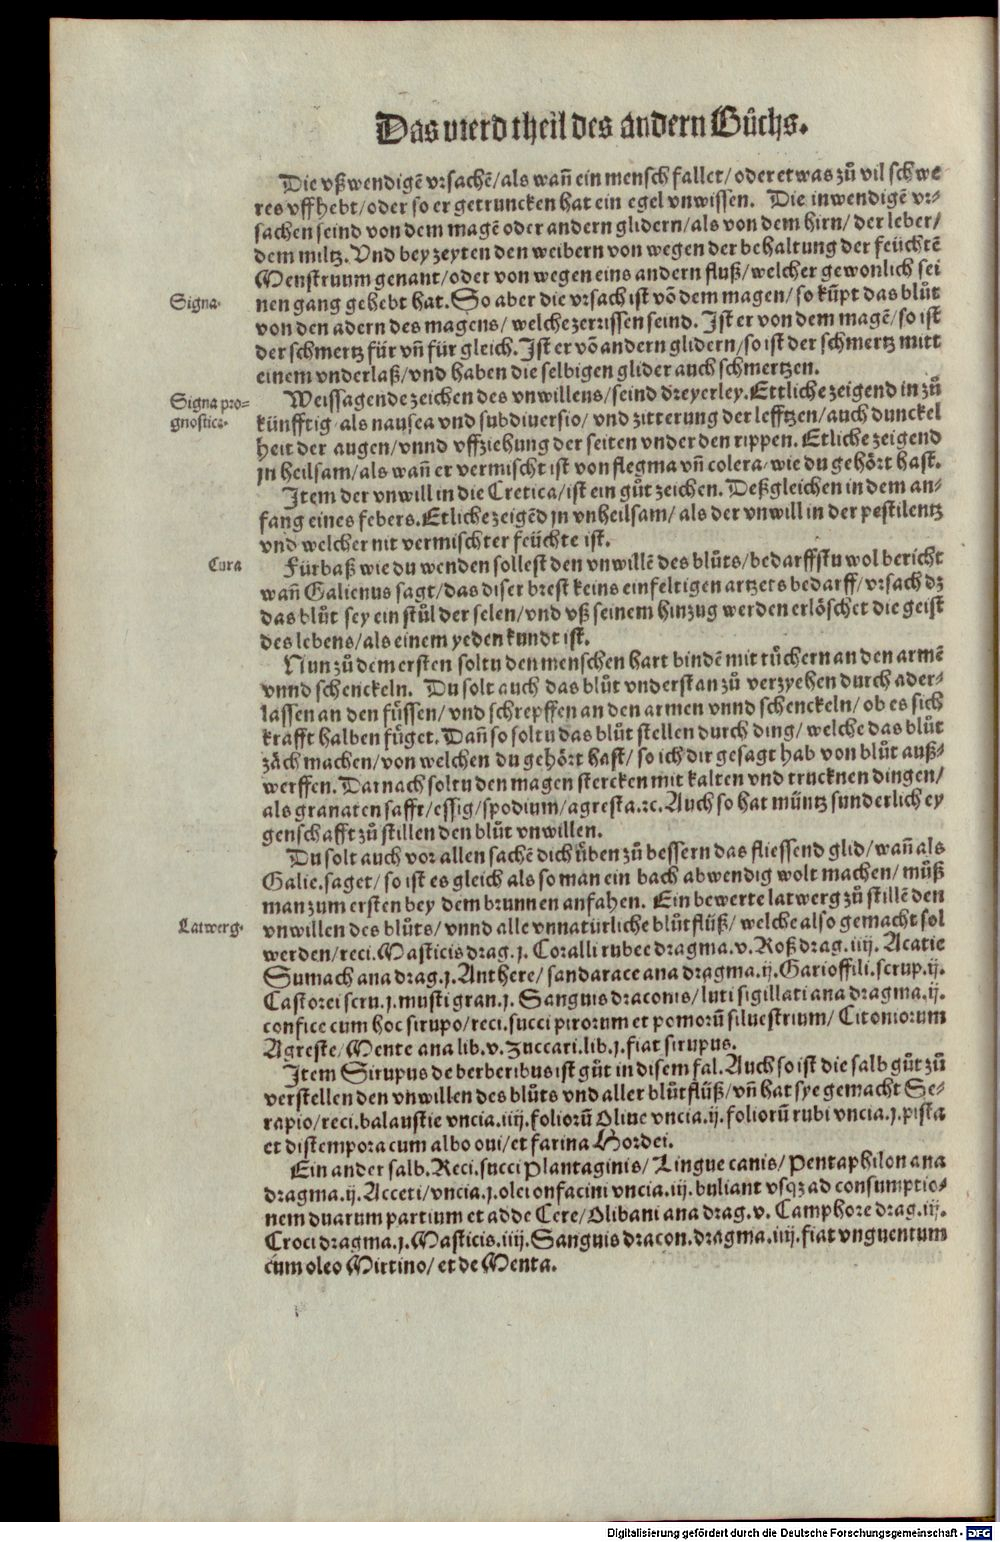 Das vierd theil des andern Bůchs.
Die vßwendigē vrsachē/als wañ ein mensch fallet/oder etwas zů vil schwe
res vffhebt/oder so er getruncken hat ein egel vnwissen. Die inwendigē vr⸗
sachen seind von dem magē oder andern glidern/als von dem hirn/der leber/
dem miltz. Vnd bey zeyten den weibern von wegen der behaltung der feüchtē
Menstruum genant/oder von wegen eins andern fluß/welcher gewonlich sei
Signa.
nen gang gehebt hat. So aber die vrsach ist võ dem magen/so kũpt das blůt
von den adern des magens/welche zerrissen seind. Ist er von dem magē/so ist
der schmertz für vñ für gleich. Ist er võ andern glidern/so ist der schmertz mitt
einem vnderlaß/vnd haben die selbigen glider auch schmertzen.
Signa pro⸗
gnostica.
Weissagende zeichen des vnwillens/seind dreyerley. Ettliche zeigend in zů
künfftig/als nausea vnd subdiuersio/vnd zitterung der lefftzen/auch dunckel
heit der augen/vnnd vffziehung der seiten vnder den rippen. Etliche zeigend
jn heilsam/als wañ er vermischt ist von flegma vñ colera/wie du gehört hast.
Item der vnwill in die Cretica/ist ein gůt zeichen. Deßgleichen in dem an⸗
fang eines febers. Etliche zeigēd jn vnheilsam/als der vnwill in der pestilentz
vnd welcher nit vermischter feüchte ist.
Cura
Fürbaß wie du wenden sollest den vnwillē des blůts/bedarffstu wol bericht
wañ Galienus sagt/das diser brest keins einfeltigen artzets bedarff/vrsach dz
das blůt sey ein stůl der selen/vnd vß seinem hinzug werden erlöschet die geist
des lebens/als einem yeden kundt ist.
Nun zů dem ersten soltu den menschen hart bindē mit tůchern an den armē
vnnd schenckeln. Du solt auch das blůt vnderstan zů verzyehen durch ader⸗
lassen an den fůssen/vnd schrepffen an den armen vnnd schenckeln/ob es sich
krafft halben füget. Dañ so soltu das blůt stellen durch ding/welche das blůt
zäch machen/von welchen du gehört hast/so ich dir gesagt hab von blůt auß⸗
werffen. Darnach soltu den magen stercken mit kalten vnd trucknen dingen/
als granaten safft/essig/spodium/agresta.ꝛc. Auch so hat müntz sunderlich ey
genschafft zů stillen den blůt vnwillen.
Du solt auch vor allen sachē dich üben zů bessern das fliessend glid/wañ als
Galie.saget/so ist es gleich als so man ein bach abwendig wolt machen/můß
man zum ersten bey dem brunnen anfahen. Ein bewerte latwerg zů stillē den
Latwerg.
vnwillen des blůts/vnnd alle vnnatürliche blůtflüß/welche also gemacht sol
werden/reci.Masticis drag.j. Coralli rubee dragma.v. Roß drag.iiij. Acatie
Sumach ana drag.j. Anthere/sandarace ana dragma.ij. Garioffili.scrup.ij.
Castorei scru.j.musti gran.j. Sanguis draconis/luti sigillati ana dragma.ij.
confice cum hoc sirupo/reci.succi pirorum et pomorũ siluestrium/Citoniorum
Agreste/Mente ana lib.v.zuccari.lib.j.fiat sirupus.
Item Sirupus de berberibus ist gůt in disem fal. Auch so ist die salb gůt zů
verstellen den vnwillen des blůts vnd aller blůtflüß/vñ hat sye gemacht Se⸗
rapio/reci.balaustie vncia.iiij.foliorũ Oliue vncia.ij.foliorũ rubi vncia.j.pista
et distempora cum albo oui/et farina Hordei.
Ein ander salb. Reci.succi Plantaginis/Lingue canis/Pentaphilon ana
dragma.ij. Acceti/vncia.j.olei onfacini vncia.iij.buliant vsqꝫ ad consumptio⸗
nem duarum partium et adde Cere/Olibani ana drag.v. Camphore drag.iij.
Croci dragma.j. Masticis.iiij. Sanguis dracon.dragma.iiij.fiat vnguentum
cum oleo Mirtino/et de Menta.
Digitalisierung gefördert durch die Deutsche Forschungsgemeinschaft - DFG